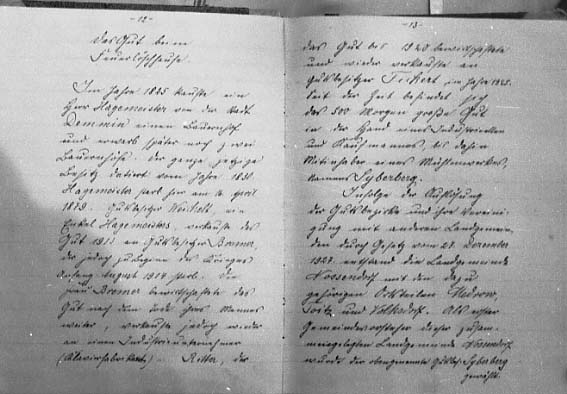 - 12 -
Das Gut beim
Feuerlöschhause.
Im Jahre 1835 kaufte ein
Herr Hagemeister von der Stadt
Demmin einen Bauernhof
und erwarb später noch zwei
Bauernhöfe. Der ganze jetzige
Besitz datiert vom Jahre 1838.
Hagemeister starb hier am 16. April
1873. Gutsbesitzer Weichelt, ein
Enkel Hagemeisters, verkaufte das
Gut 1913 an Gutsbesitzer Bremer,
der jedoch zu Beginn des Krieges
Anfang August 1914 starb. Die
Frau Bremer bewirtschaftete das
Gut nach dem Tode ihres Mannes
weiter, verkaufte jedoch wieder
an einen Industrieunternehmer
(Klavierfabrikant) Ritter, der
- 13 -
das Gut bis 1920 bewirtschaftete
und wieder verkaufte an
Gutsbesitzer Teichert, im Jahre 1925.
Seit der Zeit befindet sich
das 500 Morgen große Gut
in der Hand eines Industriellen
und Kaufmannes, bis
Mitinhaber eines Mühlenwerkes,
namens Syberberg.
Infolge der Auflösung
der Gutsbezirke und ihre Vereini-
gung mit anderen Landgemein-
den durch Gesetz vom 27. Dezember
1927 entstand die Landgemeinde
Nossendorf mit den dazu
gehörigen Ortsteilen Medrow,
Toitz und Volksdorf. Als erster
Gemeindevorsteher dieser zusam-
mengelegten Landgemeinde Nossendorf
wurde der obengenannte Gutsbes. Syberberg
gewählt.